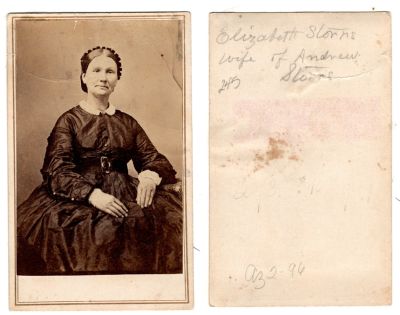 Elizabeth Storrs
wife of Andrew
Storrs
Az2-96